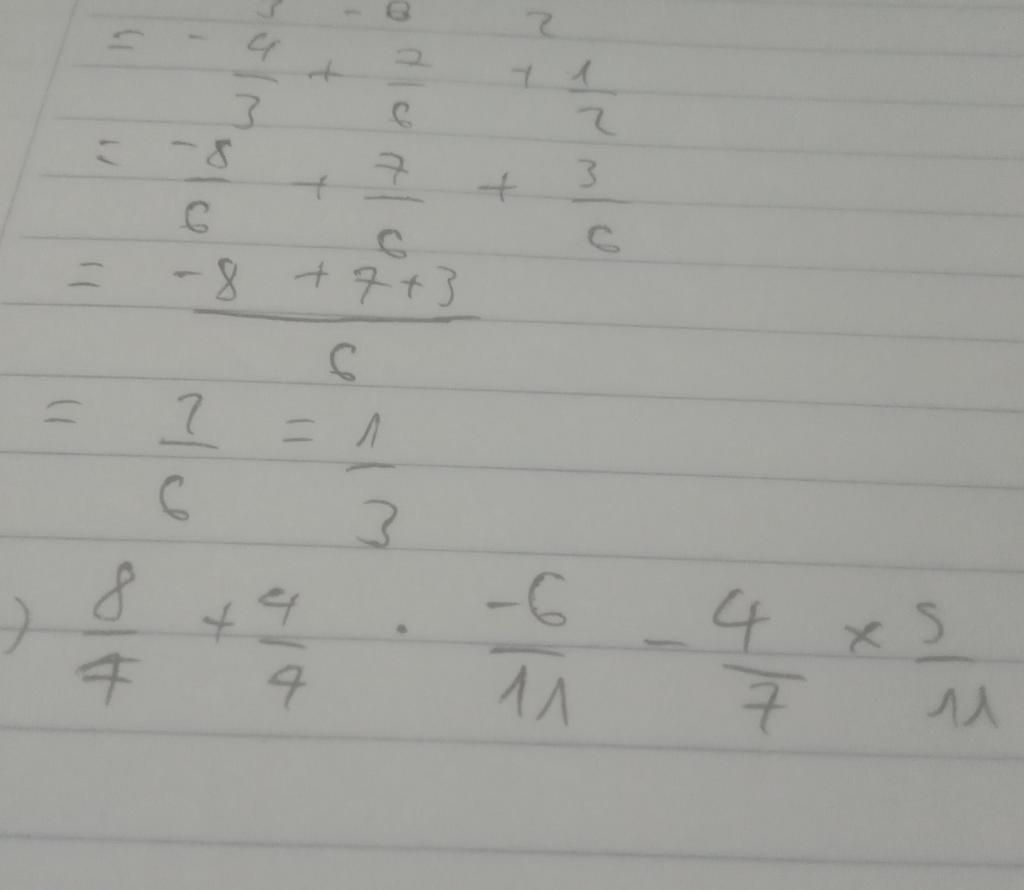 = - 4/3 + 7/6 + 1/2
= -8/6 + 7/6 + 3/6
= (-8 + 7 + 3)/6
= 2/6 = 1/3
) 8/7 + 4/4 . -6/11 - 4/7 × 5/11